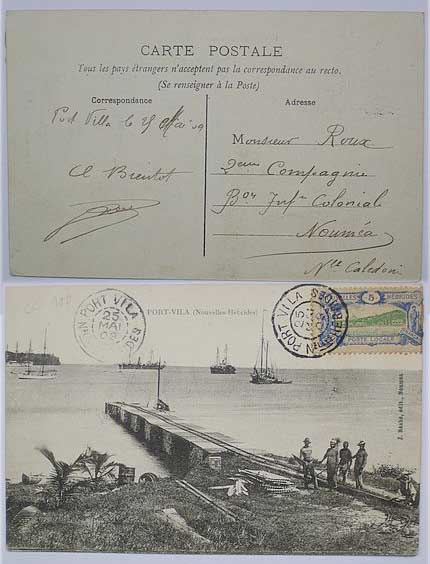 CARTE POSTALE
Tous les pays étrangers n'acceptent pas la correspondance au recto.
(Se renseigner à la Poste)
Correspondance
Adresse
Port Villa le 25 Mai 09
A Bientot
Monsieur Roux
2eme Compagnie
Bon Infie Coloniale
Nouméa
Nlle Calédonie
PORT-VILA (Nouvelles-Hébrides)
PORT VILA
25
MAI
PORT VILA
25
5
HEBRIDES
POSTE LOCALE
J. Raché, édit., Nouméa